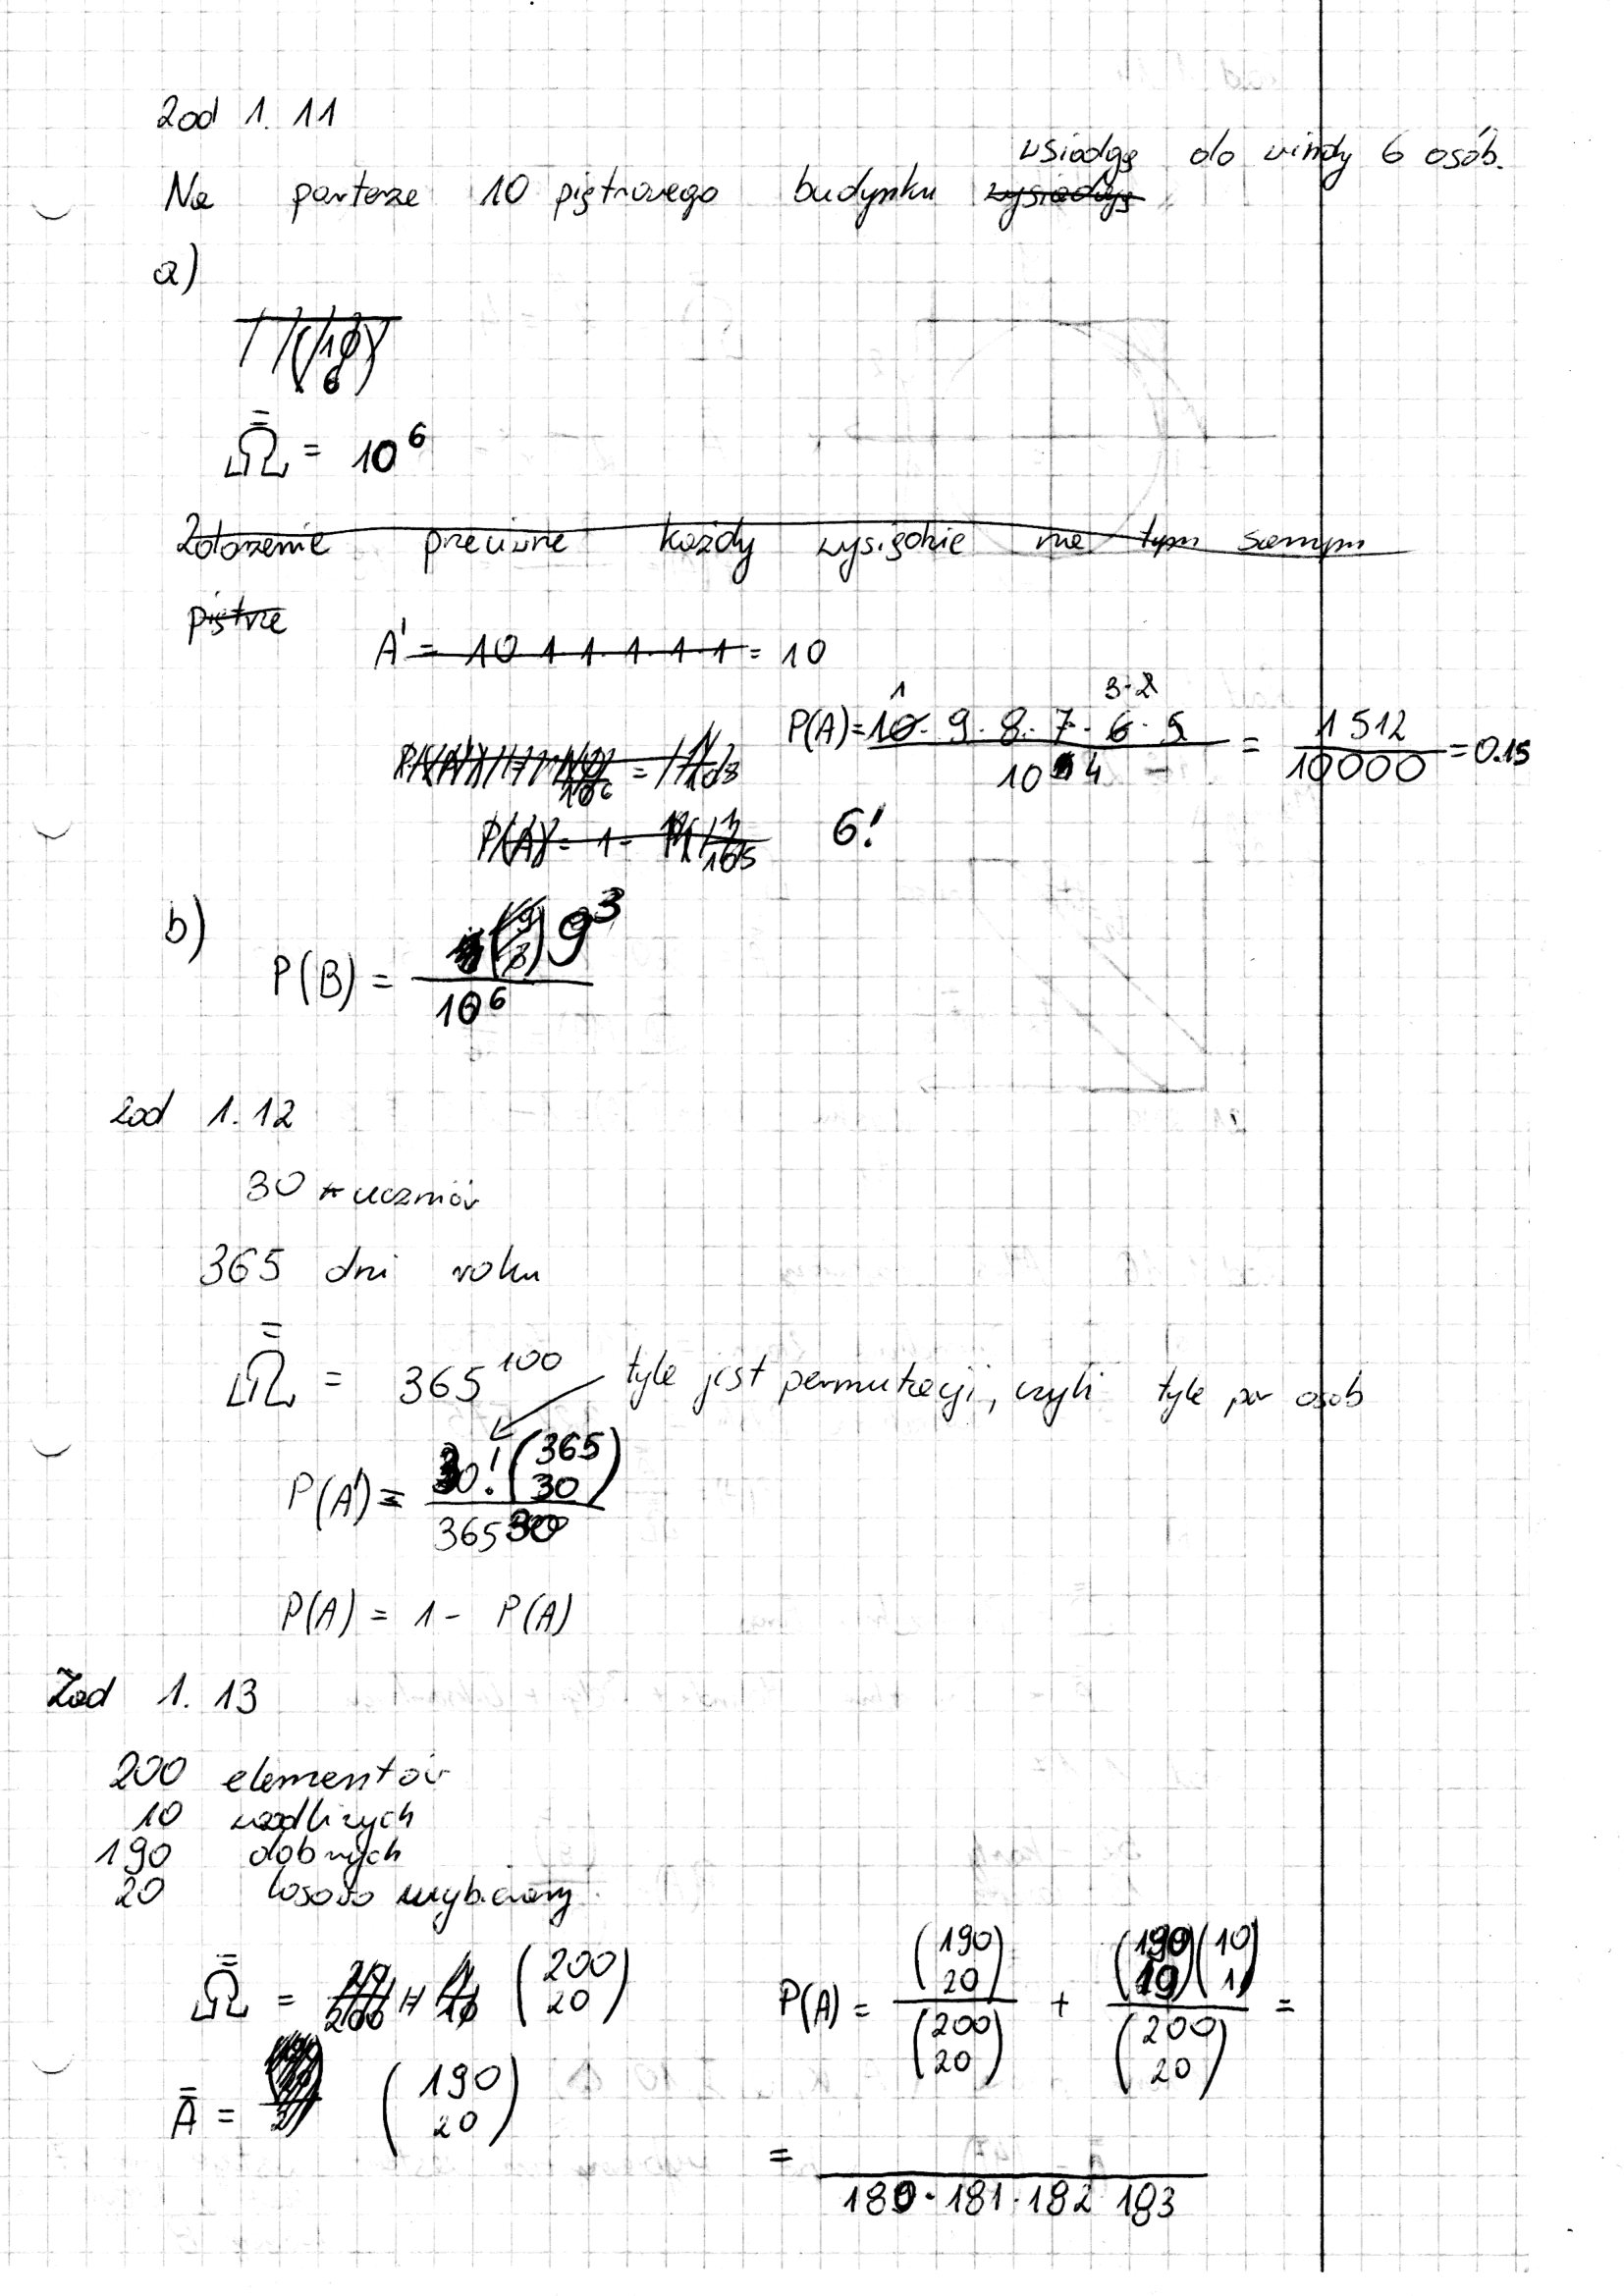 Zad 1. 11
wsiadają do windy 6 osób.
Na parterze 10 piętrowego budynku wysiadają
a)
Ω̿ = 10^6
Założenie przeciwne każdy wysiądzie na tym samym
piętrze
A' = 10 1 1 1 1 1 = 10
P(A) = 10 · 9 · 8 · 7 · 6 · 5 / 10^4 = 1512 / 10000 = 0.15
1 3·2
6!
b)
P(B) = 9^3 / 10^6
Zad 1. 12
30 uczniów
365 dni roku
Ω̿ = 365^100
tyle jest permutacji, czyli tyle par osób
P(A') = 30! (365 30) / 365^30
P(A) = 1 - P(A)
Zad 1. 13
200 elementów
10 wadliwych
190 dobrych
20 losowo wybieramy
Ω̿ = (200 20)
A̿ = (190 20)
P(A) = (190 20) / (200 20) + (190 19)(10 1) / (200 20) =
= / 180 · 181 · 182 183